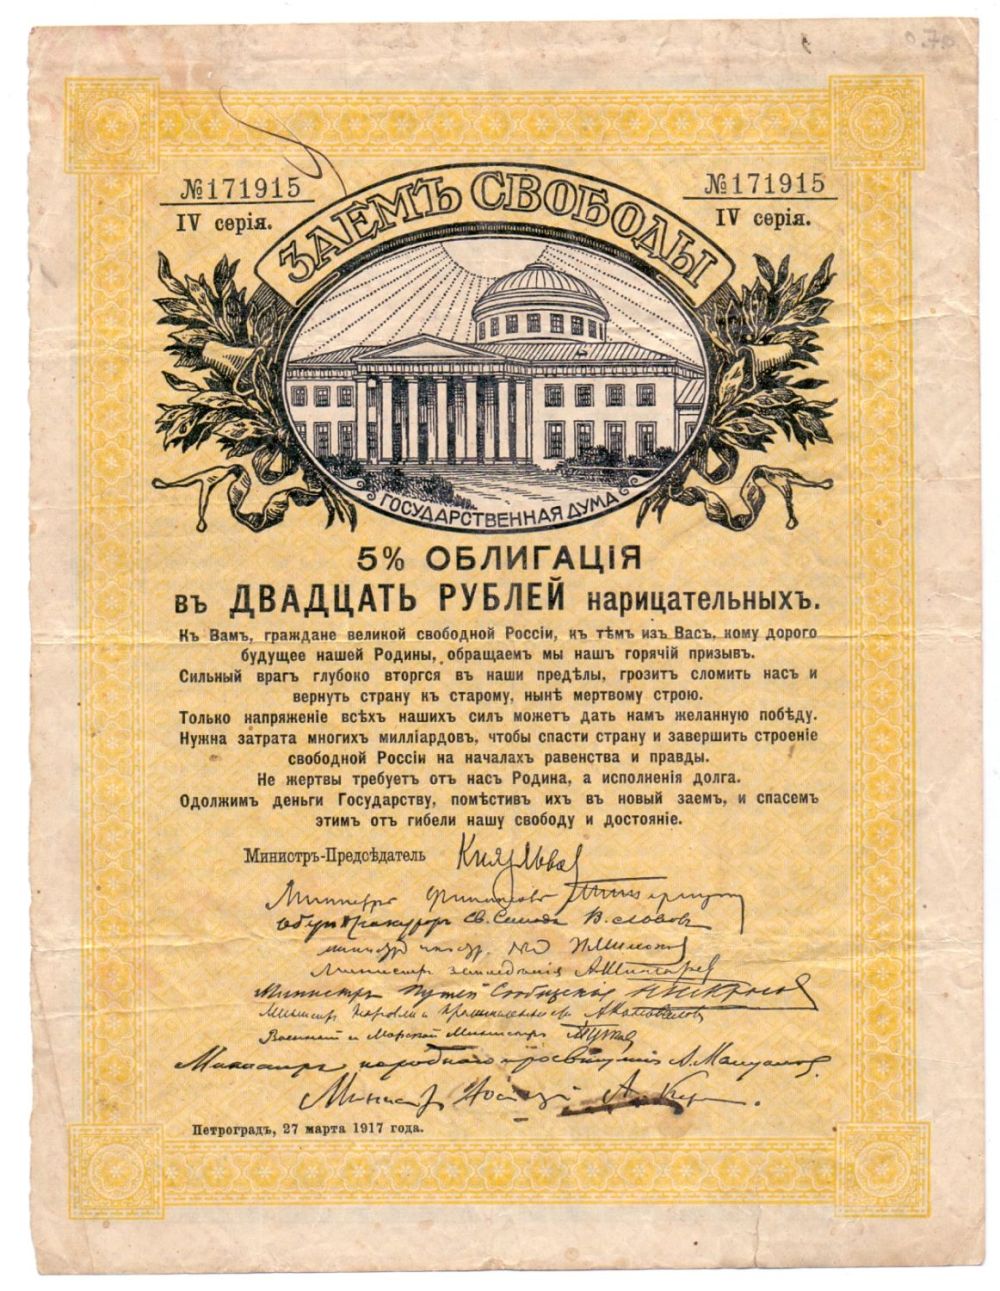 №171915
IV серія.
№171915
IV серія.
ЗАЕМЪ СВОБОДЫ
ГОСУДАРСТВЕННАЯ ДУМА
5% ОБЛИГАЦІЯ
въ ДВАДЦАТЬ РУБЛЕЙ нарицательныхъ.
Къ Вамъ, граждане великой свободной Россіи, къ тѣмъ изъ Васъ, кому дорого
будущее нашей Родины, обращаемъ мы нашъ горячій призывъ.
Сильный врагъ глубоко вторгся въ наши предѣлы, грозитъ сломить насъ и
вернуть страну къ старому, нынѣ мертвому строю.
Только напряженіе всѣхъ нашихъ силъ можетъ дать намъ желанную побѣду.
Нужна затрата многихъ милліардовъ, чтобы спасти страну и завершить строеніе
свободной Россіи на началахъ равенства и правды.
Не жертвы требуетъ отъ насъ Родина, а исполненія долга.
Одолжимъ деньги Государству, помѣстивъ ихъ въ новый заемъ, и спасемъ
этимъ отъ гибели нашу свободу и достояніе.
Министръ-Предсѣдатель Князь Львов
Министръ финансовъ
Оберъ Прокуроръ Св. Синода В. Львовъ
министр иностр.
Министръ земледѣлія А. Шингарев
Министръ Путей Сообщенія Н. Некрасов
Министръ Торговли и Промышленности А. Коновалов
Военный и Морской Министръ
Министръ народного просвѣщенія А. Мануилов.
Министръ Юстиціи А. Кер
Петроградъ, 27 марта 1917 года.